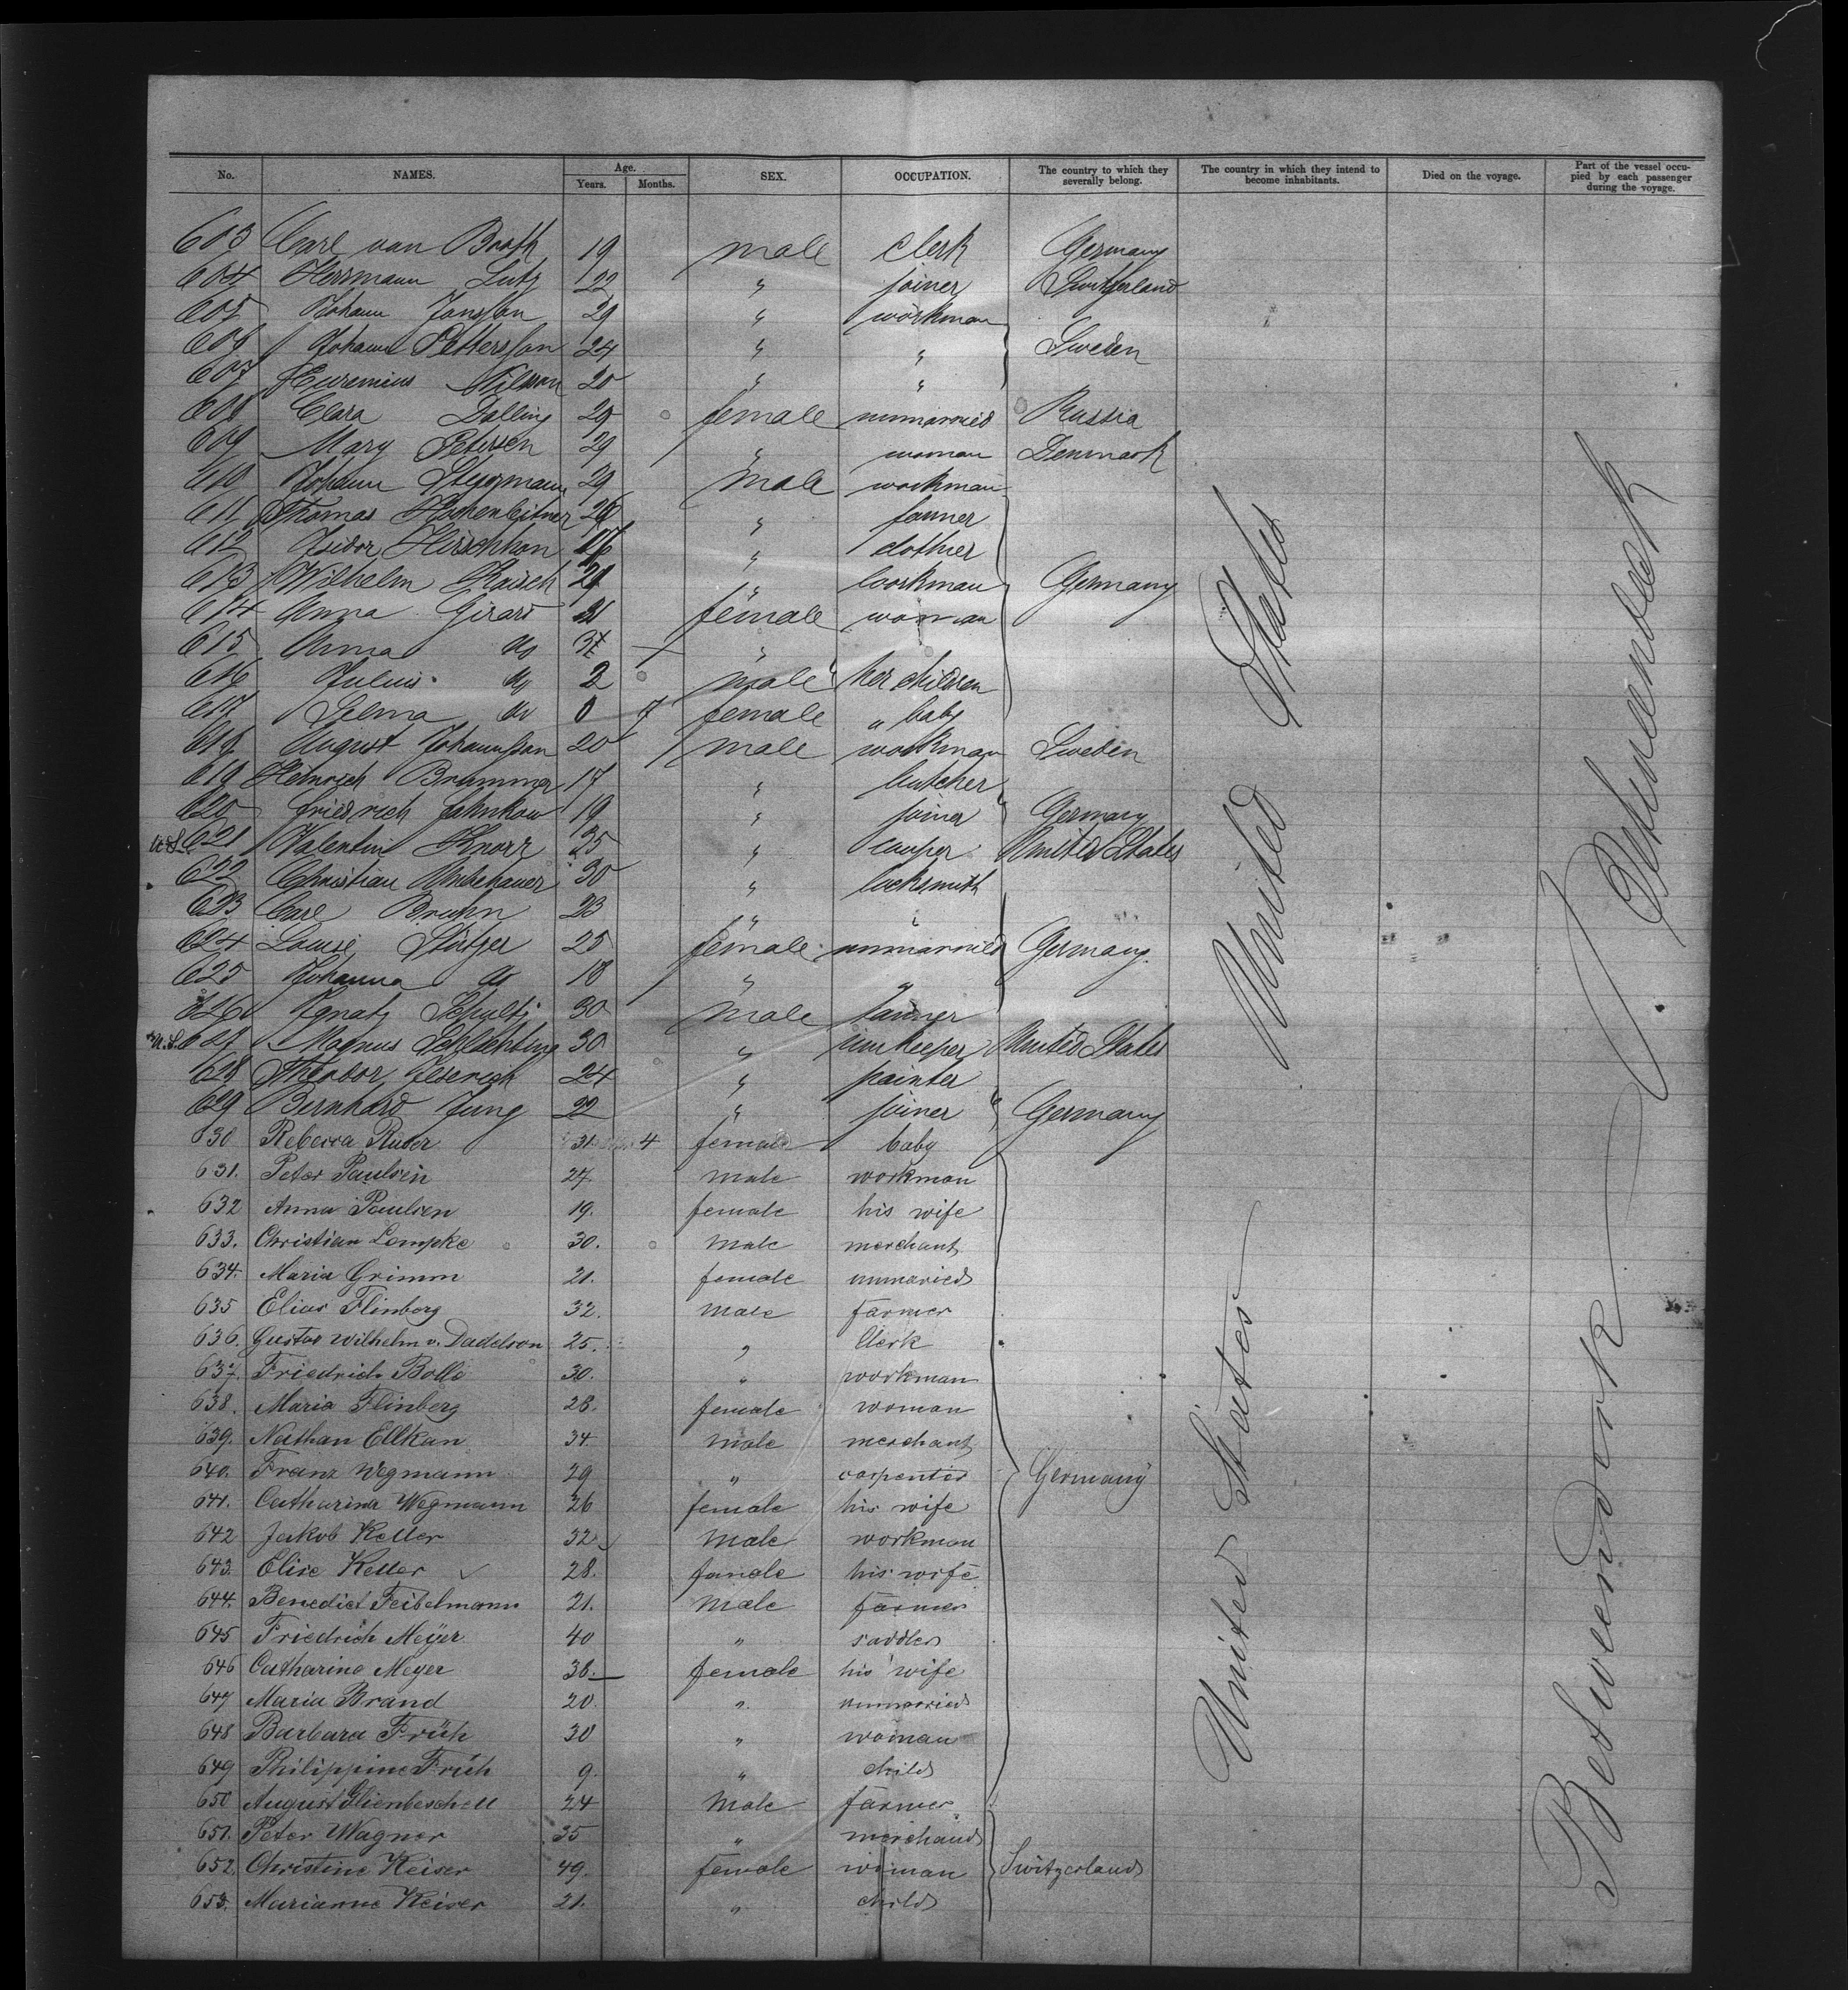 No. NAMES. Age. Years. Months. SEX. OCCUPATION. The country to which they severally belong. The country in which they intend to become inhabitants. Died on the voyage. Part of the vessel occupied by each passenger during the voyage.
603 Carl van Booth 19 male clerk Germany
604 Herrmann Lutz 22 " joiner Switzerland
605 Johann Jonsson 29 " workman
606 Johann Pettersson 24 " " Sweden
607 Nilsson 20 " "
608 Clara Dalling 20 female unmarried Russia
609 Mary Petersen 29 " woman Denmark
610 Johann Stegmann 29 male workman
611 Thomas " farmer
612 Isidor Hirschkan " clothier
613 Wilhelm Raisch 29 " workman Germany
614 Anna Girard female woman
615 Anna do "
616 Julius do 2 male her children
617 Selma do 0 7 female " baby
618 August Johannsson 20 male workman Sweden
619 Heinrich Brummer 17 " butcher
620 Friedrich Jahnkow 19 " joiner Germany
U.S. 621 Valentin Knorz 25 " cooper United States
622 Christian Umbehauer 30 " locksmith
623 Carl Bruhn 23 " "
624 Louise Stürzer 25 female unmarried Germany
625 Johanna do 18 " "
626 Ignatz Schultz 30 male farmer
U.S. 627 Magnus Schlichting 30 " innkeeper United States
628 Theodor Jeserich 24 " painter
629 Bernhard Jung 22 " joiner Germany
630 Rebecca Ruder 31 4 female baby
631. Peter Paulsen 27. male workman
632 Anna Paulsen 19. female his wife
633. Christian Lempke 30. male merchant
634. Maria Grimm 21. female unmaried
635 Elias Flinberg 32. male farmer
636. Gustav Wilhelm v. Daddelson 25. " Clerk
637. Friedrich Bolle 30. " workman
638. Maria Flinberg 28. female woman
639. Nathan Ellkan 34. male merchant
640. Franz Wegmann 29 " carpenter Germany
641. Catharina Wegmann 26 female his wife
642 Jakob Keller 32 male workman
643. Elise Keller 28. female his wife
644. Benedict Feibelmann 21. male farmer
645 Friedrich Meÿer 40 " saddler
646 Catharina Meyer 38. female his wife
647 Maria Brand 20. " unmarried
648 Barbara Früh 30 " woman
649 Philippine Früh 9. " child
650 August 24 male farmer
651. Peter Wagner 35 " merchand
652. Christine Keiser 49. female woman Switzerland
653. Marianne Keiser 21. " child
United States
United States
Zwischendeck
Betweendeck